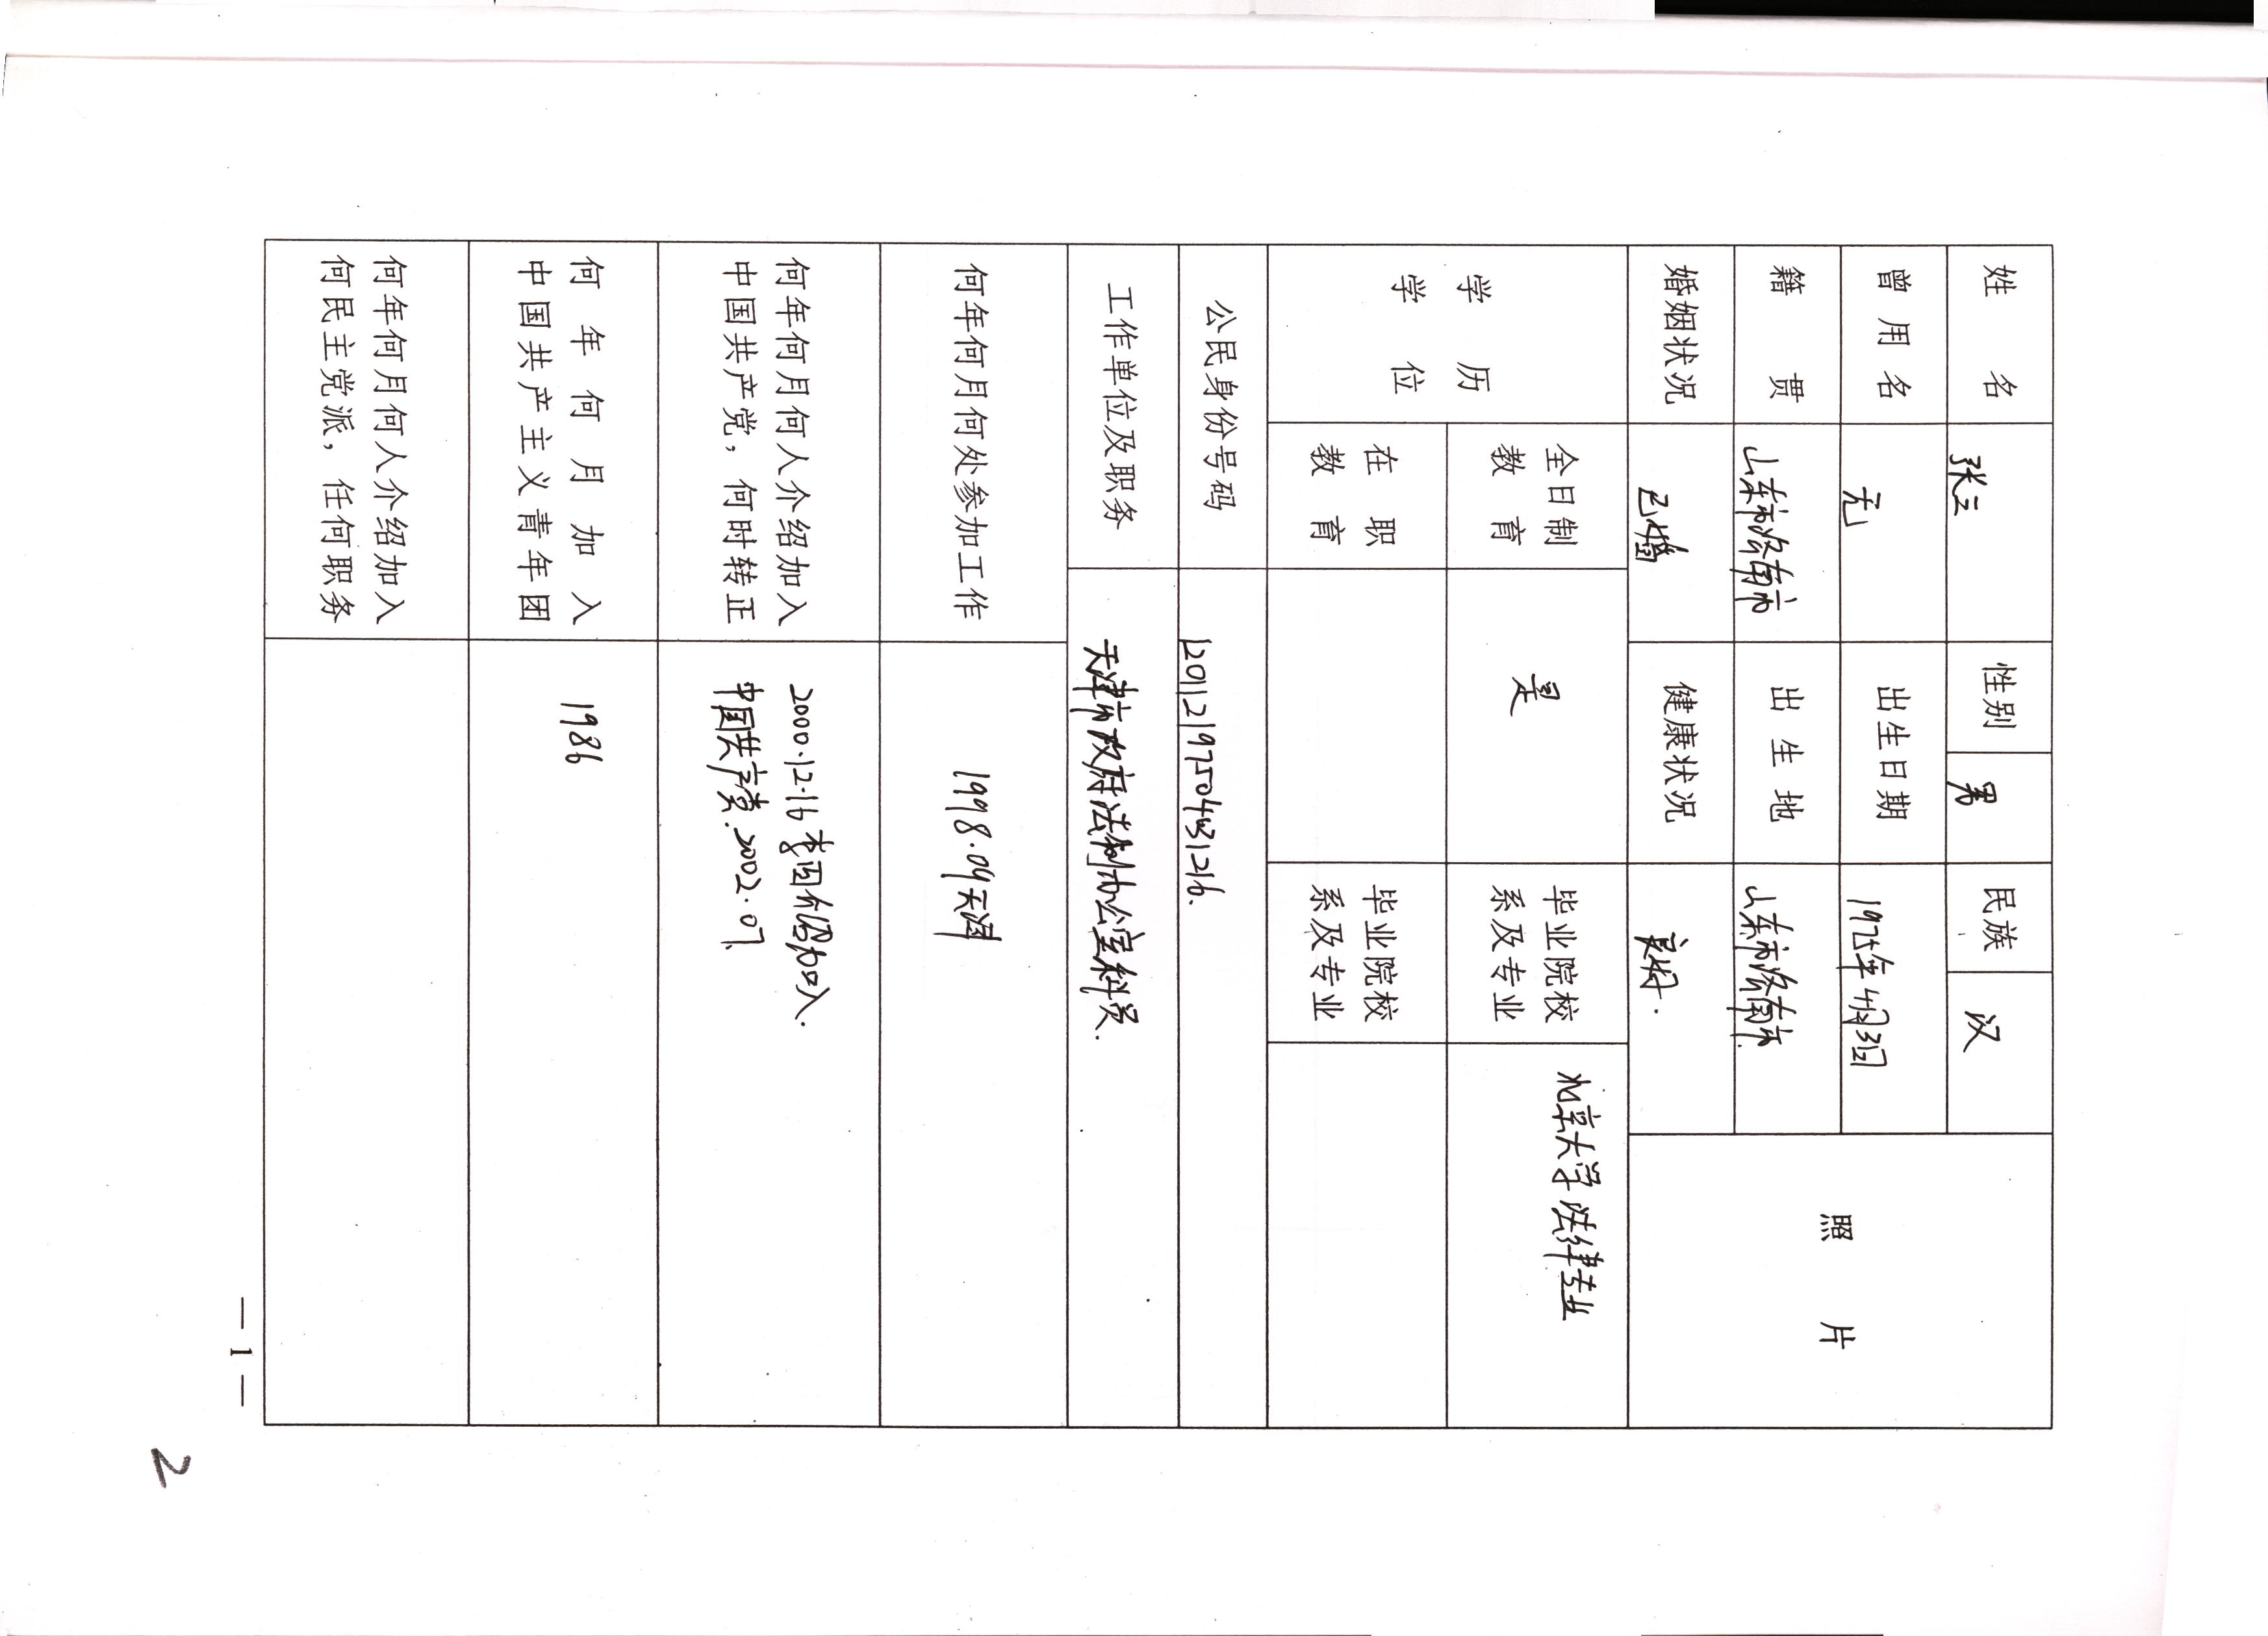 姓 名 张三 性别 男 民族 汉
曾用名 无 出生日期 1975年4月3日
照 片
籍 贯 山东市济南市 出生地 山东市济南市.
婚姻状况 已婚 健康状况 良好.
学 历
学 位
全日制
教 育
是
毕业院校
系及专业
北京大学法律专业
在 职
教 育
毕业院校
系及专业
公民身份号码 120112197504031216.
工作单位及职务 天津市政府法制办公室科员.
何年何月何处参加工作 1998.09天津
何年何月何人介绍加入
中国共产党,何时转正
2000.12.16李四介绍加入.
中国共产党.2002.07.
何年何月加入
中国共产主义青年团
1986
何年何月何人介绍加入
何民主党派,任何职务
— 1 —
2